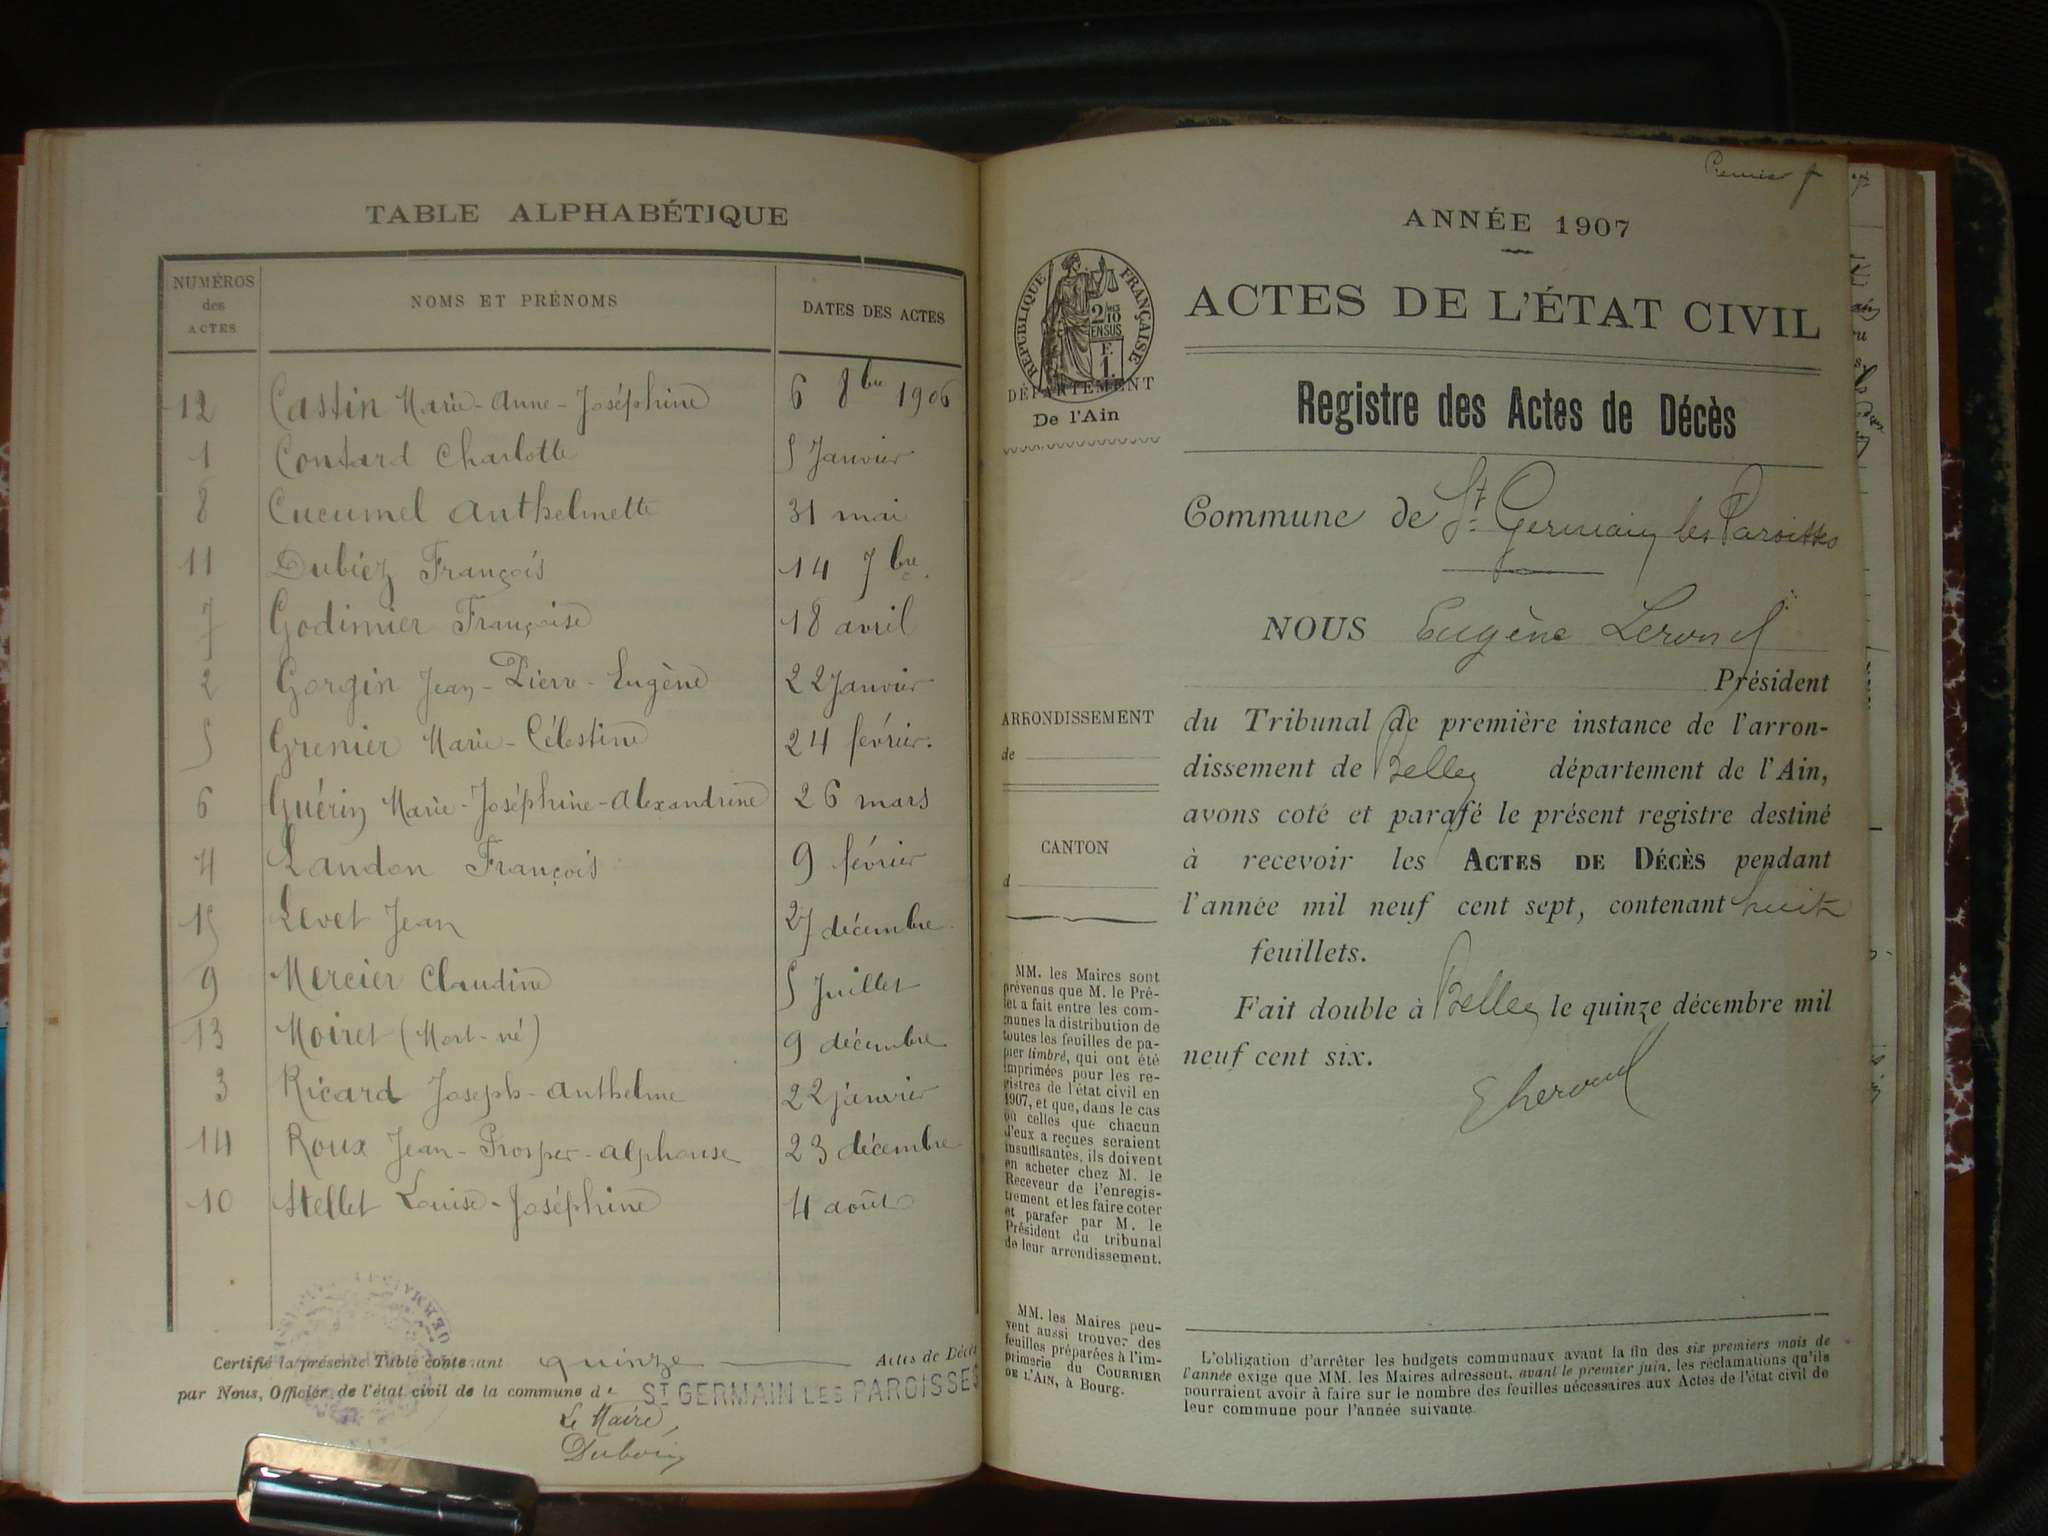 TABLE ALPHABÉTIQUE
NUMÉROS des ACTES
NOMS ET PRÉNOMS
DATES DES ACTES
12 Castin Marie-Anne-Joséphine 6 8bre 1906
1 Contard Charlotte 5 Janvier
8 Cucumel Anthelmette 31 mai
11 Dubiez François 14 7bre
7 Godimier Françoise 18 avril
2 Gorgin Jean-Pierre-Eugène 22 Janvier
5 Grenier Marie-Célestine 24 février.
6 Guérin Marie-Joséphine-Alexandrine 26 mars
4 Landon François 9 février
15 Levet Jean 27 décembre
9 Mercier Claudine 5 Juillet
13 Moiret (Mort-né) 9 décembre
3 Ricard Joseph-Anthelme 22 janvier
14 Roux Jean-Prosper-Alphonse 23 décembre
10 Stellet Louise-Joséphine 4 août
Certifié la présente Table contenant quinze Actes de Décès
par Nous, Officier de l'état civil de la commune de ST GERMAIN LES PAROISSES
Le Maire,
Premier f
ANNÉE 1907
RÉPUBLIQUE FRANÇAISE
2/10 EN SUS
F. 1.
DÉPARTEMENT
De l'Ain
ACTES DE L'ÉTAT CIVIL
Registre des Actes de Décès
Commune de St Germain les Paroisses
NOUS Eugène
Président
du Tribunal de première instance de l'arron-
dissement de Belley département de l'Ain,
avons coté et parafé le présent registre destiné
à recevoir les ACTES DE DÉCÈS pendant
l'année mil neuf cent sept, contenant huit
feuillets.
Fait double à Belley le quinze décembre mil
neuf cent six.
ARRONDISSEMENT
de
CANTON
d
MM. les Maires sont
prévenus que M. le Pré-
fet a fait entre les com-
munes la distribution de
toutes les feuilles de pa-
pier timbré, qui ont été
imprimées pour les re-
gistres de l'état civil en
1907, et que, dans le cas
où celles que chacun
d'eux a reçues seraient
insuffisantes, ils doivent
en acheter chez M. le
Receveur de l'enregis-
trement et les faire coter
et parafer par M. le
Président du tribunal
de leur arrondissement.
MM. les Maires peu-
vent aussi trouver des
feuilles préparées à l'im-
primerie du COURRIER
DE L'AIN, à Bourg.
L'obligation d'arrêter les budgets communaux avant la fin des six premiers mois de
l'année exige que MM. les Maires adressent, avant le premier juin, les réclamations qu'ils
pourraient avoir à faire sur le nombre des feuilles nécessaires aux Actes de l'état civil de
leur commune pour l'année suivante.